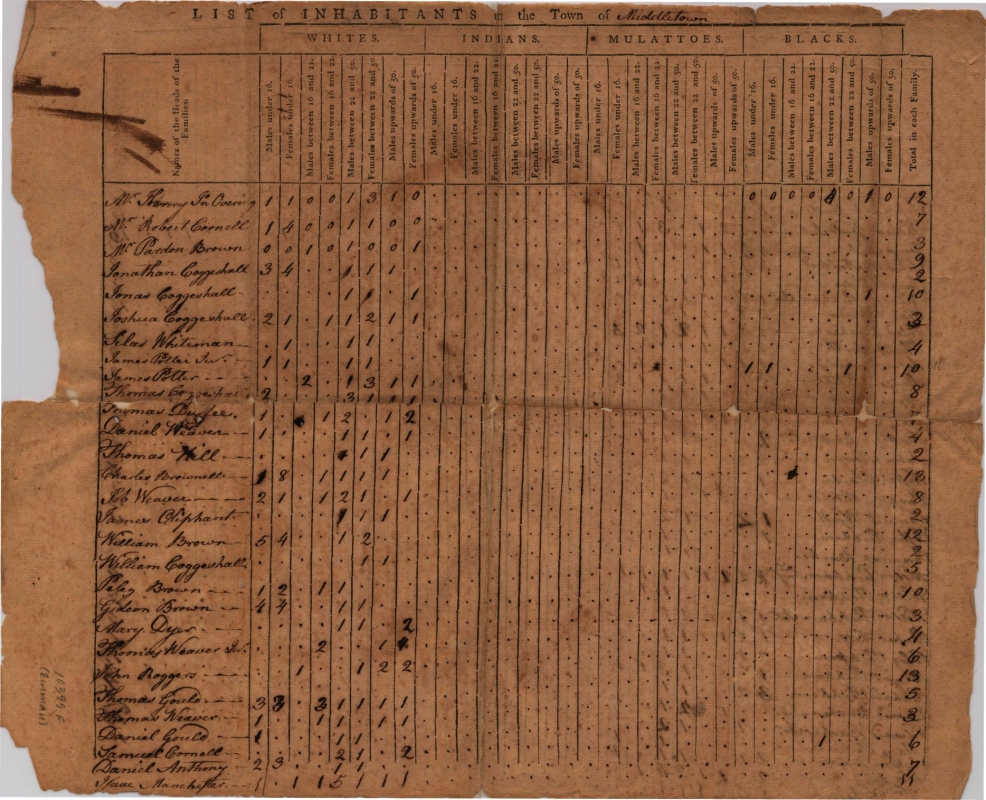 LIST of INHABITANTS in the Town of Middletown
WHITES. INDIANS. MULATTOES. BLACKS.
Names of the Heads of the Families
Males under 16.
Females under 16.
Males between 16 and 22.
Females between 16 and 22.
Males between 22 and 50.
Females between 22 and 50.
Males upwards of 50.
Females upwards of 50.
Males under 16.
Females under 16.
Males between 16 and 22.
Females between 16 and 22.
Males between 22 and 50.
Females between 22 and 50.
Males upwards of 50.
Females upwards of 50.
Males under 16.
Females under 16.
Males between 16 and 22.
Females between 16 and 22.
Males between 22 and 50.
Females between 22 and 50.
Males upwards of 50.
Females upwards of 50.
Males under 16.
Females under 16.
Males between 16 and 22.
Females between 16 and 22.
Males between 22 and 50.
Females between 22 and 50.
Males upwards of 50.
Females upwards of 50.
Total in each Family.
Mr. Henry Jn Overing 1 1 0 0 1 3 1 0 0 0 0 0 4 0 1 0 12
Mr. Robert Cornell 1 4 0 0 1 1 0 0 7
Mr. Pardon Brown 0 0 1 0 1 0 0 1 3
Jonathan Coggeshall 3 4 1 1 1 9
Jonas Coggeshall 1 1 1 2
Joshua Coggeshall 2 1 1 1 2 1 1 10
Silas Whitman 1 1 1 3
James Potter Junr. 1 1 1 1 4
James Potter 2 1 3 1 1 1 1 1 10
Thomas Coggeshall 2 3 1 1 1 8
Thomas Durfee 1 1 2 1 2
Daniel Weaver 1 1 1 1 4
Thomas Hill 1 1 2
Charles Brownell 1 8 1 1 1 1 13
Job Weaver 2 1 1 2 1 1 8
James Oliphant 1 1 2
William Brown 5 4 1 2 12
William Coggeshall 1 1 2
Peleg Brown 1 2 1 1 5
Gideon Brown 4 4 1 1 10
Mary Dyer 1 1 2 3
Thomas Weaver Junr. 2 1 4
John Roggers 1 1 2 2 6
Thomas Gould 3 3 3 1 1 1 1 13
Thomas Weaver 1 1 1 1 1 5
Daniel Gould 1 1 1 3
Samuel Cornell 2 1 2 6
Daniel Anthony 2 3 1 1 7
Isaac Manchester 1 1 5 1 1